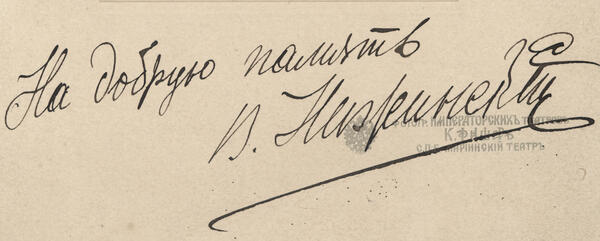 На добрую память
В. Нижинскій
ФОТОГР. ИМПЕРАТОРСКИХЪ ТЕАТРОВЪ
К. ФИШЕРЪ
С.П.Б. МАРІИНСКІЙ ТЕАТРЪ.